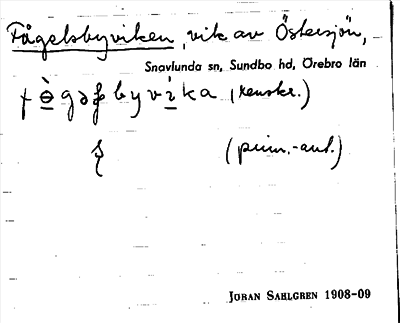 Fågelsbyviken, vik av Östersjön,
Snavlunda sn, Sundbo hd, Örebro län
(renskr.)
(prim.-ant.)
JÖRAN SAHLGREN 1908-09